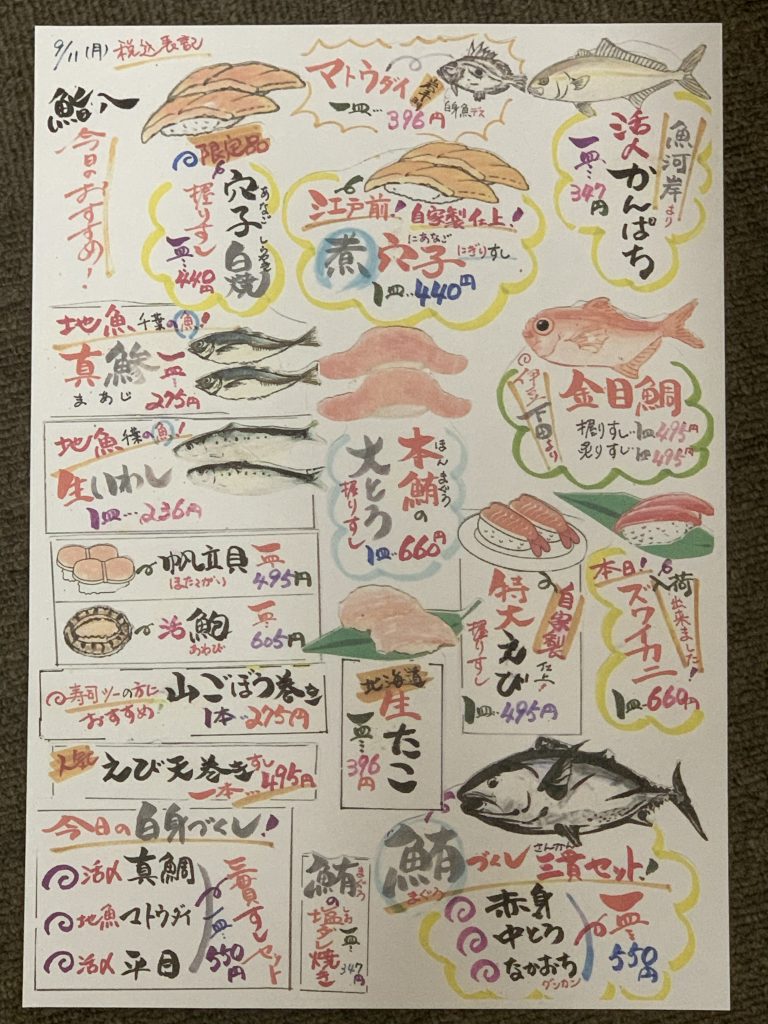 9/11(月) 税込表記
鮨八
今日のおすすめ!
限定品
穴子白焼
あなご しらやき
握りすし
一皿…440円
マトウダイ
一皿…396円
白身魚デス
魚河岸より
活〆かんぱち
一皿…347円
江戸前! 自家製仕上!
煮穴子 にぎりすし
にあなご
1皿…440円
地魚 千葉の魚!
真鯵
まあじ
一皿…275円
地魚 千葉の魚!
生いわし
1皿…236円
本鮪の
ほんまぐろ
大とろ
握りすし
1皿…660円
伊豆下田より
金目鯛
握りすし…1皿495円
炙りすし…1皿495円
帆立貝 一皿…495円
ほたてがい
活鮑 一皿…605円
あわび
寿司ツーの方におすすめ
山ごぼう巻き
1本…275円
人気 えび天巻きすし
一本…495円
北海道
生たこ
一皿…396円
自家製仕上!
特大えび
握りすし
1皿…495円
本日!入荷出来ました!
ズワイカニ
1皿…660円
今日の白身づくし!
活〆真鯛
地魚マトウダイ
活〆平目
三貫すしセット
一皿…550円
鮪の塩ダレ焼き
まぐろ しお
一皿…347円
鮪づくし三貫セット!
まぐろ さんかん
赤身
中とろ
なかおち
グンカン
一皿…550円